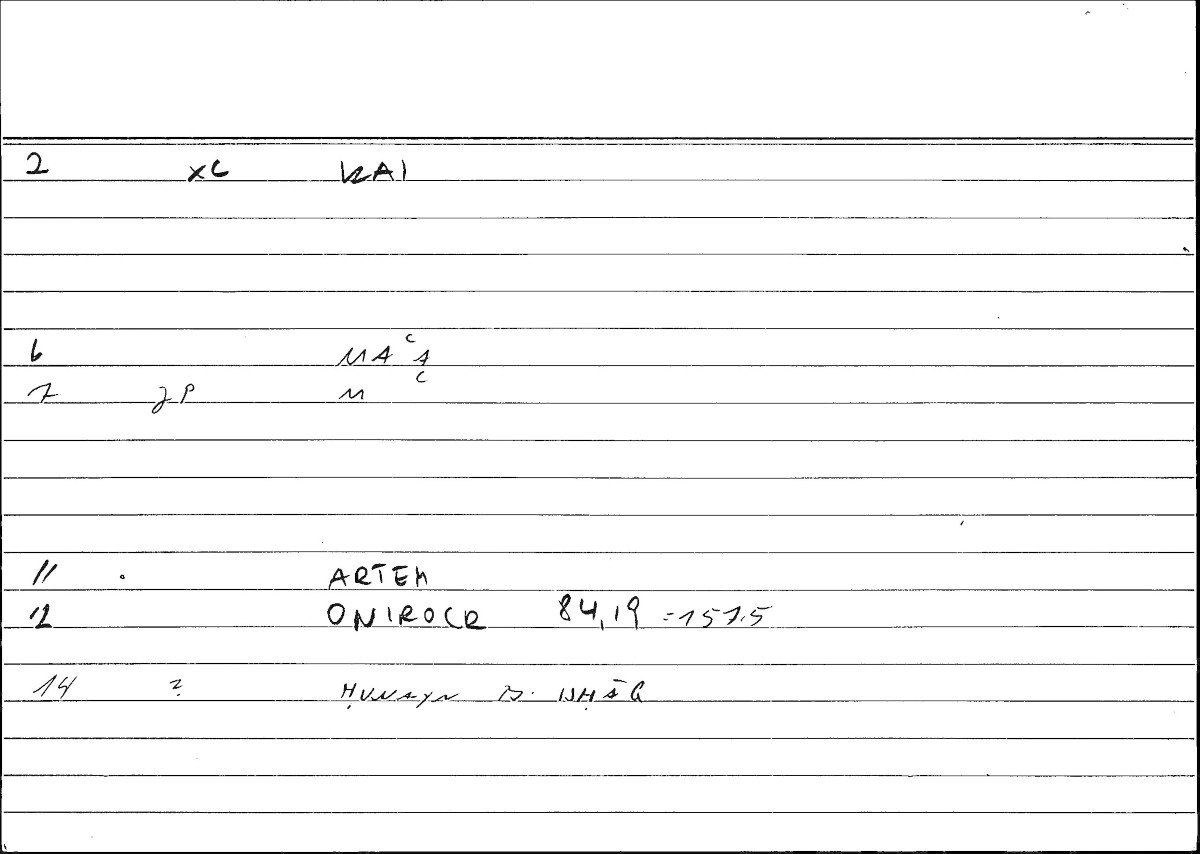 2 xc KAI
6 MAʿA
7 JP Mʿ
11 . ARTEM
12 ONIROCR 84,19 =157.5
14 ? ḤUNAYN B. ISḤĀQ